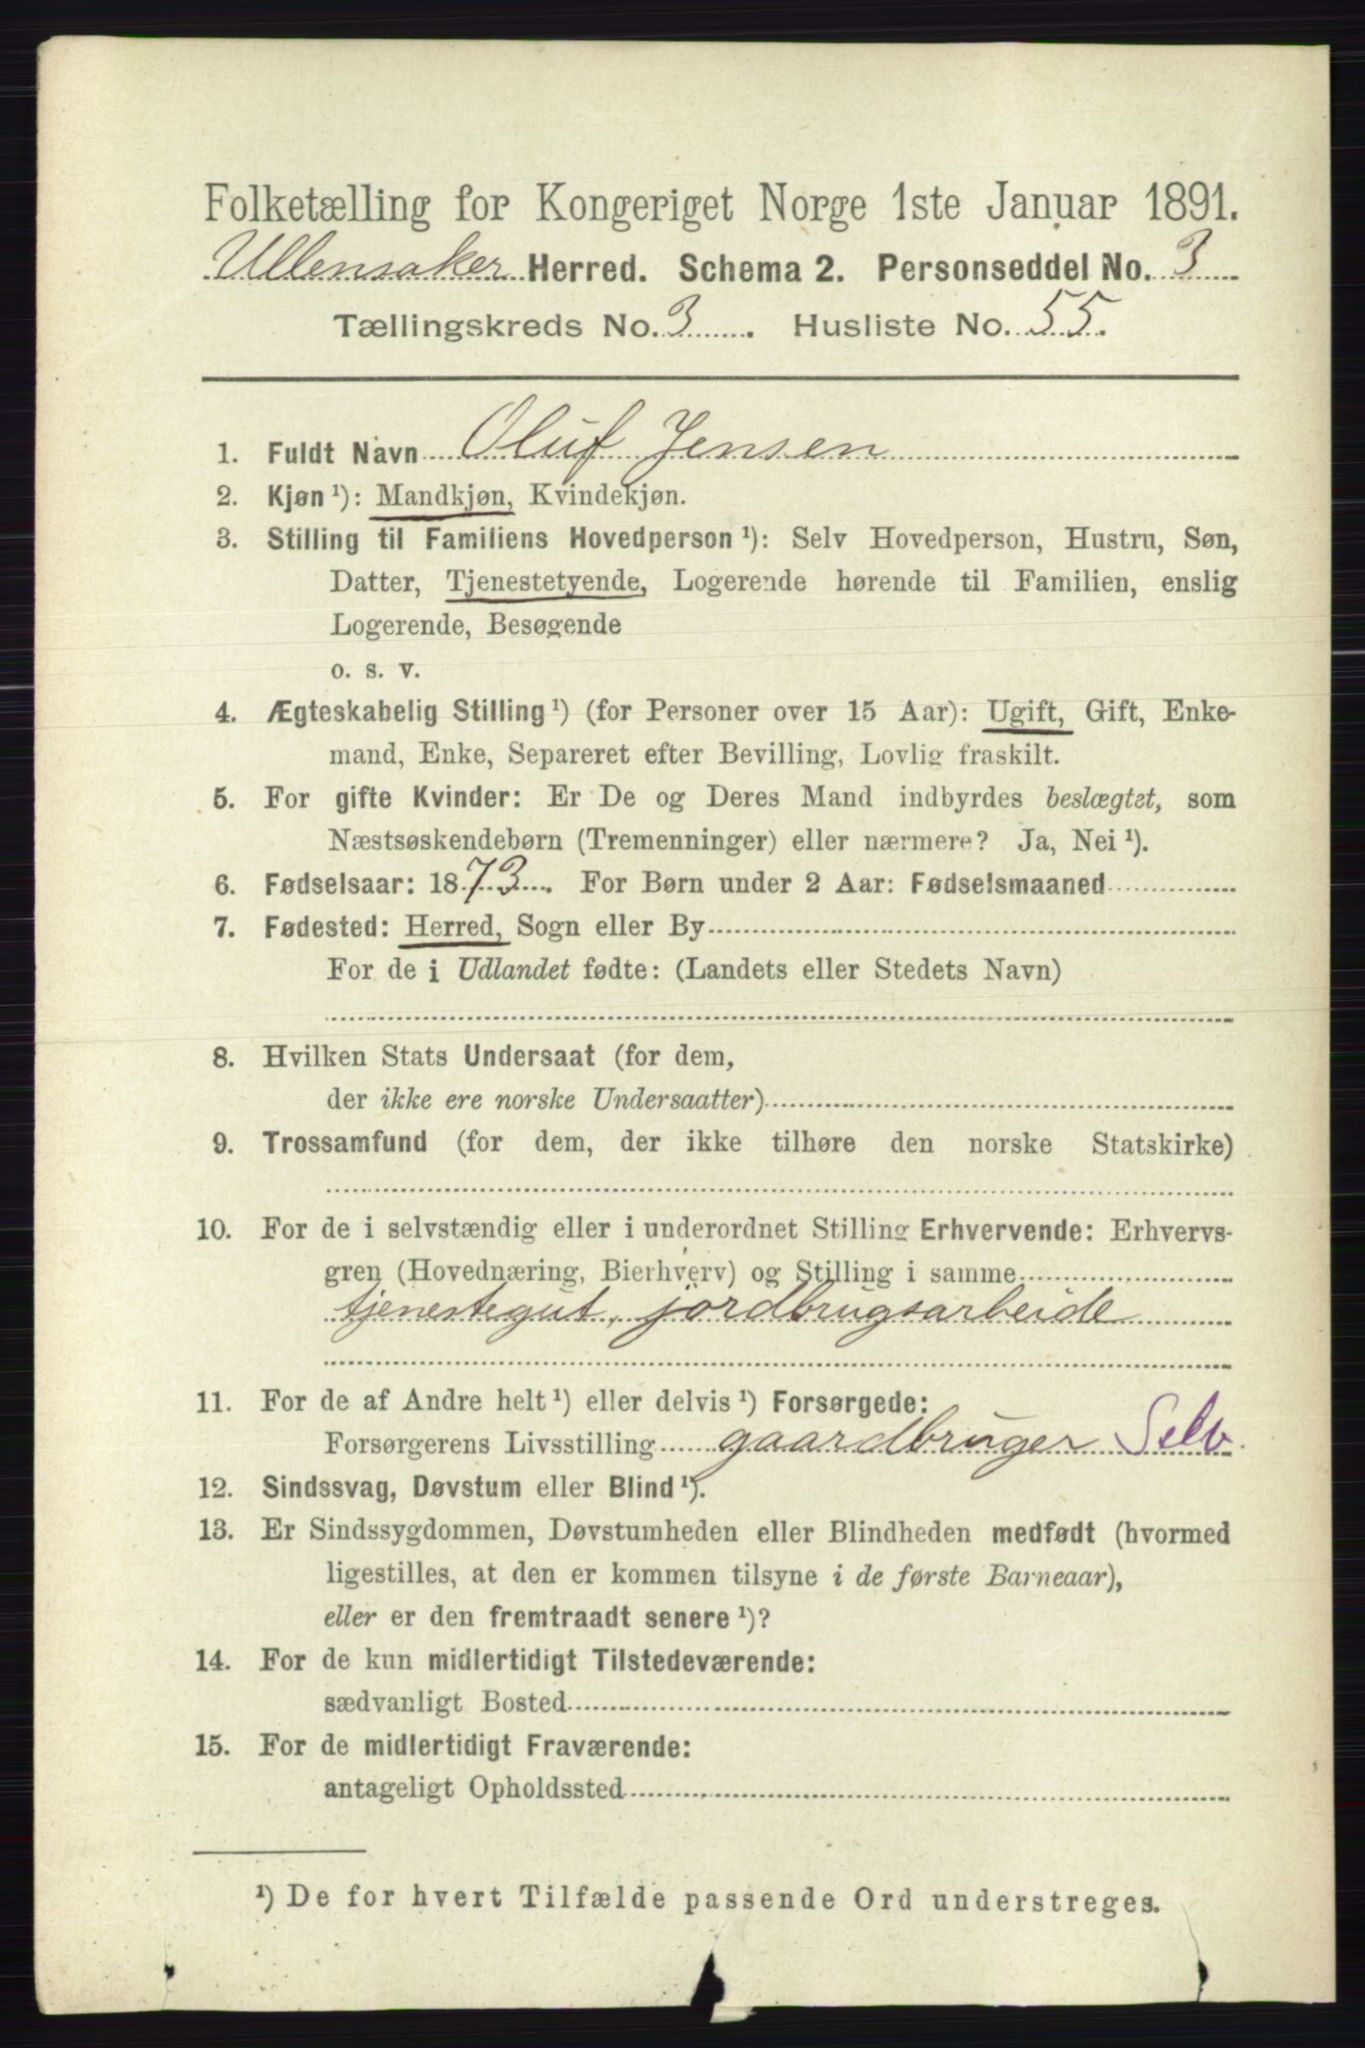 Folketælling for Kongeriget Norge 1ste Januar 1891.
Ullensaker Herred. Schema 2. Personseddel No. 3
Tællingskreds No. 3. Husliste No. 55.
1. Fuldt Navn Oluf Jensen
2. Kjøn ¹): Mandkjøn, Kvindekjøn.
3. Stilling til Familiens Hovedperson ¹): Selv Hovedperson, Hustru, Søn,
Datter, Tjenestetyende, Logerende hørende til Familien, enslig
Logerende, Besøgende
o. s. v.
4. Ægteskabelig Stilling ¹) (for Personer over 15 Aar): Ugift, Gift, Enke-
mand, Enke, Separeret efter Bevilling, Lovlig fraskilt.
5. For gifte Kvinder: Er De og Deres Mand indbyrdes beslægtet, som
Næstsøskendebørn (Tremenninger) eller nærmere? Ja, Nei ¹).
6. Fødselsaar: 1873. For Børn under 2 Aar: Fødselsmaaned
7. Fødested: Herred, Sogn eller By
For de i Udlandet fødte: (Landets eller Stedets Navn)
8. Hvilken Stats Undersaat (for dem,
der ikke ere norske Undersaatter)
9. Trossamfund (for dem, der ikke tilhøre den norske Statskirke)
10. For de i selvstændig eller i underordnet Stilling Erhvervende: Erhvervs-
gren (Hovednæring, Bierhverv) og Stilling i samme
tjenestegut, jordbrugsarbeide
11. For de af Andre helt ¹) eller delvis ¹) Forsørgede:
Forsørgerens Livsstilling gaardbruger Selv.
12. Sindssvag, Døvstum eller Blind ¹).
13. Er Sindssygdommen, Døvstumheden eller Blindheden medfødt (hvormed
ligestilles, at den er kommen tilsyne i de første Barneaar),
eller er den fremtraadt senere ¹)?
14. For de kun midlertidigt Tilstedeværende:
sædvanligt Bosted
15. For de midlertidigt Fraværende:
antageligt Opholdssted
¹) De for hvert Tilfælde passende Ord understreges.